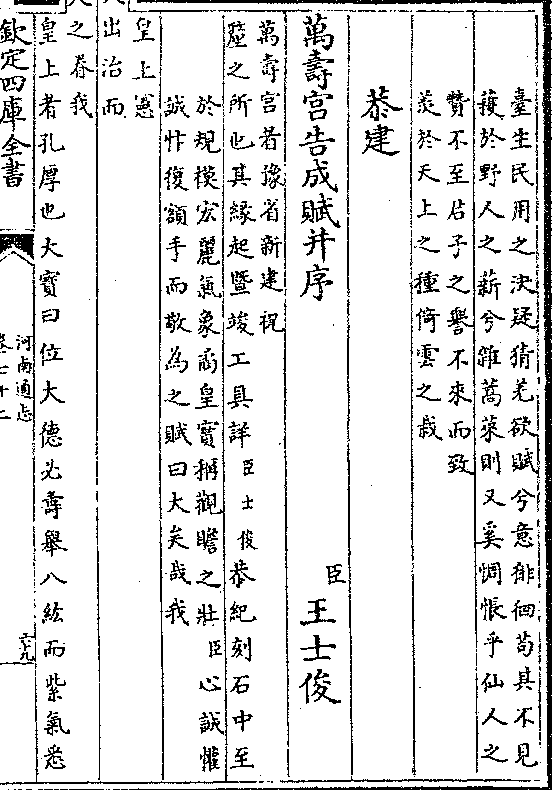 臺生民用之決疑猜羌欲賦兮意徘徊茍其不見
䕶於野人之薪兮雜蒿萊則又奚惆悵乎仙人之
贊不至君子之譽不來而致
羨於天上之種倚雲之栽
恭建
萬壽宫告成賦并序
臣王士俊
萬壽宫者豫省新建祝
釐之所也其緣起暨竣工具詳臣士俊恭紀刻石中至
於規模宏麗氣象矞皇實稱觀瞻之壯臣心誠懽
誠忭復額手而敬為之賦曰大矣哉我
皇上憲
出治而
之眷我
皇上者孔厚也大寳曰位大德必壽舉八紘而紫氣悉
欽定四庫全書
河南通志
卷七十二
六九